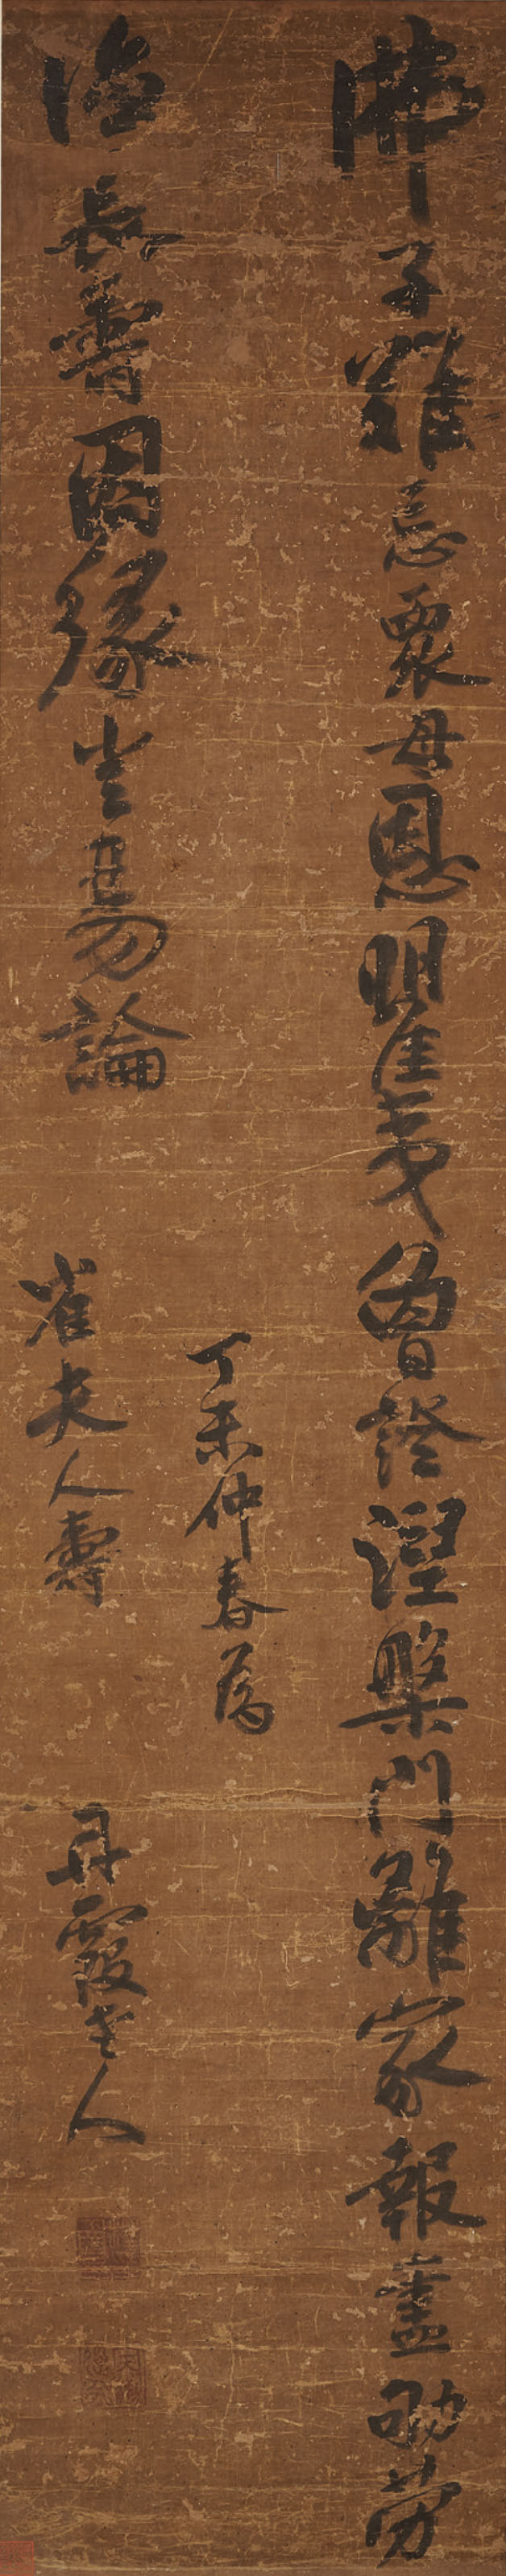 佛子難忘衆母恩瞿夷曾證涅槃門離家報盡劬勞
治長壽因緣豈易論
丁未仲春為
崔夫人壽
丹霞老人